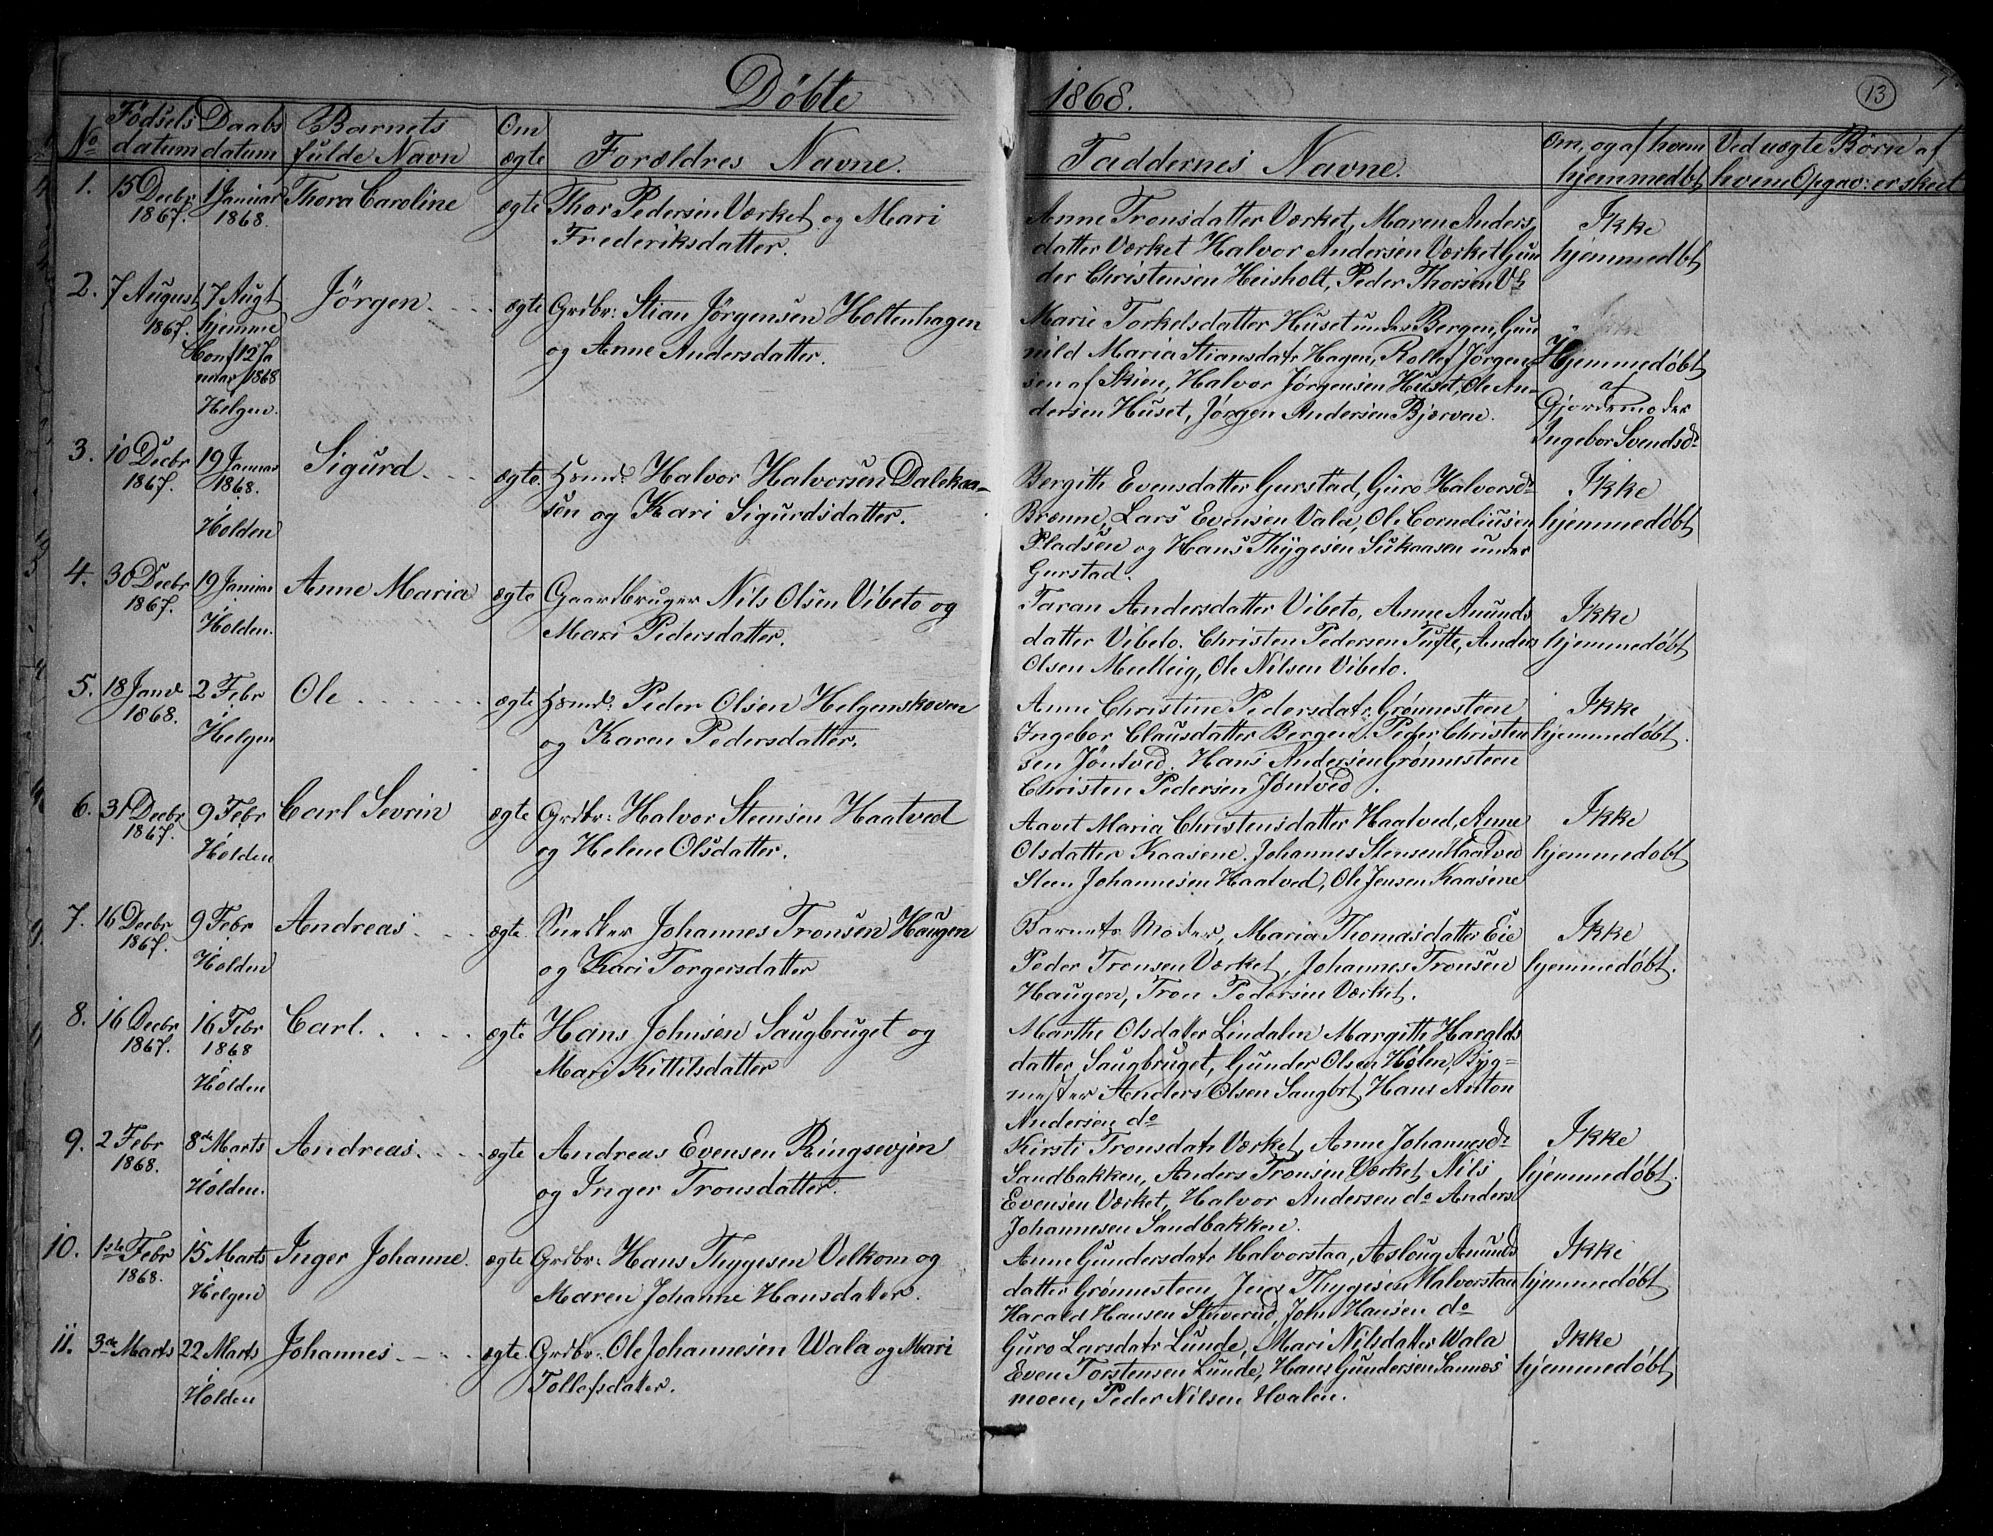 Døbte 1868. 13
No Fødsels datum Daabs datum Barnets fulde Navn Om ægte Forældres Navne. Faddernes Navne. Om, og af hvem hjemmedbt Ved uægte Børn af hvem Opgav: er skeet
1. 15 Decbr 1867. 1 Januar 1868. Thora Caroline ægte Thor Pedersen Værket og Mari
Frederiksdatter.
Anne Tronsdatter Værket, Maren Anders
datter Værket Halvor Andersen Værket Gun
der Christensen Heisholt, Peder Thorsen V
Ikke
hjemmedbt
2. 7 August 1867. 7 Augt hjemme Conf 12 Ja
nuar 1868
Helgen.
Jørgen ægte Grdbr: Stian Jørgensen Holtenhagen
og Anne Andersdatter.
Marie Torkelsdatter Huset under Bergen, Gun
nild Maria Stiansdatr Hagen, Rollef Jørgen
sen af Skien, Halvor Jørgensen Huset, Ole An
dersen Huset, Jørgen Andersen Bjerven.
Hjemmedøbt
af
Gjordemoder
Ingebor Svendsdr
3. 10 Decbr 1867. 19 Januar 1868.
Holden
Sigurd ægte Hsmd: Halvor Halvorsen Dalskaa-
sen og Kari Sigurdsdatter.
Bergith Evensdatter Gurstad, Guro Halvorsdr
Brenne, Lars Evensen Vala, Ole Corneliusen
Pladsen og Hans Thygesen Sukaasen under
Gurstad.
Ikke
hjemmedøbt
4. 30 Decbr 1867. 19 Januar
Holden.
Anne Maria ægte Gaardbruger Nils Olsen Vibeto og
Mari Pedersdatter.
Taran Andersdatter Vibeto, Anne Anunds
datter Vibeto. Christen Pedersen Tufte, Anders
Olsen Melleig, Ole Nilsen Vibeto.
Ikke
hjemmedøbt
5. 18 Janr 1868. 2 Febr
i Helgen
Ole ægte Hsmd: Peder Olsen Helgenskoven
og Karen Pedersdatter.
Anne Christine Pedersdatr Grønnesteen
Ingebor Clausdatter Bergen, Peder Christen
sen Jøntved, Hans Andersen Grønnesteen
Christen Pedersen Jøntved.
Ikke
hjemmedøbt.
6. 31 Decbr 1867. 9 Febr
i Holden
Carl Sevrin ægte Grdbr: Halvor Steensen Haatved
og Helene Olsdatter.
Aavet Maria Christensdatter Haatved, Anne
Olsdatter Kaasene. Johannes Stensen Haatved
Steen Johannesen Haatved, Ole Jensen Kaasene
Ikke
hjemmedøbt
7. 16 Decbr 1867. 9 Febr
i Holden
Andreas ægte Snedker Johannes Tronsen Haugen
og Kari Torgersdatter
Barnets Moder, Maria Thomasdatter Eie
Peder Tronsen Værket, Johannes Tronsen
Haugen, Tron Pedersen Værket.
Ikke
hjemmedøbt.
8. 16 Decbr 1867. 16 Febr 1868
i Holden
Carl. ægte Hans Johnsen Saugbruget og
Mari Kittilsdatter
Marthe Olsdatter Lindalen Margith Haralds
datter Saugbruget, Gunder Olsen Holen, Byg-
mester Anders Olsen Saugbrt, Hans Anton
Andersen do
9. 2 Febr 1868. 8de Marts
i Holden.
Andreas ægte Andreas Evensen Ringsevjen
og Inger Tronsdatter.
Kirsti Tronsdatr Værket, Anne Johannesdr
Sandbakken, Anders Tronsen Værket, Nils
Evensen Værket, Halvor Andersen do Anders
Johannesen Sandbakken.
Ikke
hjemmedøbt.
10. 1ste Febr 1868. 15 Marts
i Helgen
Inger Johanne. ægte Grdbr: Hans Thygesen Velkom og
Maren Johanne Hansdatter.
Anne Gundersdatr Halvorstaa, Asloug Anunds
datter Grønnesteen, Jens Thygesen Halvorstaa
Harald Hansen Stuverud, John Hansen do
Ikke
hjemmedøbt
11. 3de Marts 22 Marts
i Holden
Johannes ægte Grdbr: Ole Johannesen Wala og Mari
Tollefsdatter.
Guro Larsdatr Lunde, Mari Nilsdatter Wala
Even Torstensen Lunde, Hans Gundersen Sannæs
moen, Peder Nilsen Hvalen.
Ikke
hjemmedøbt